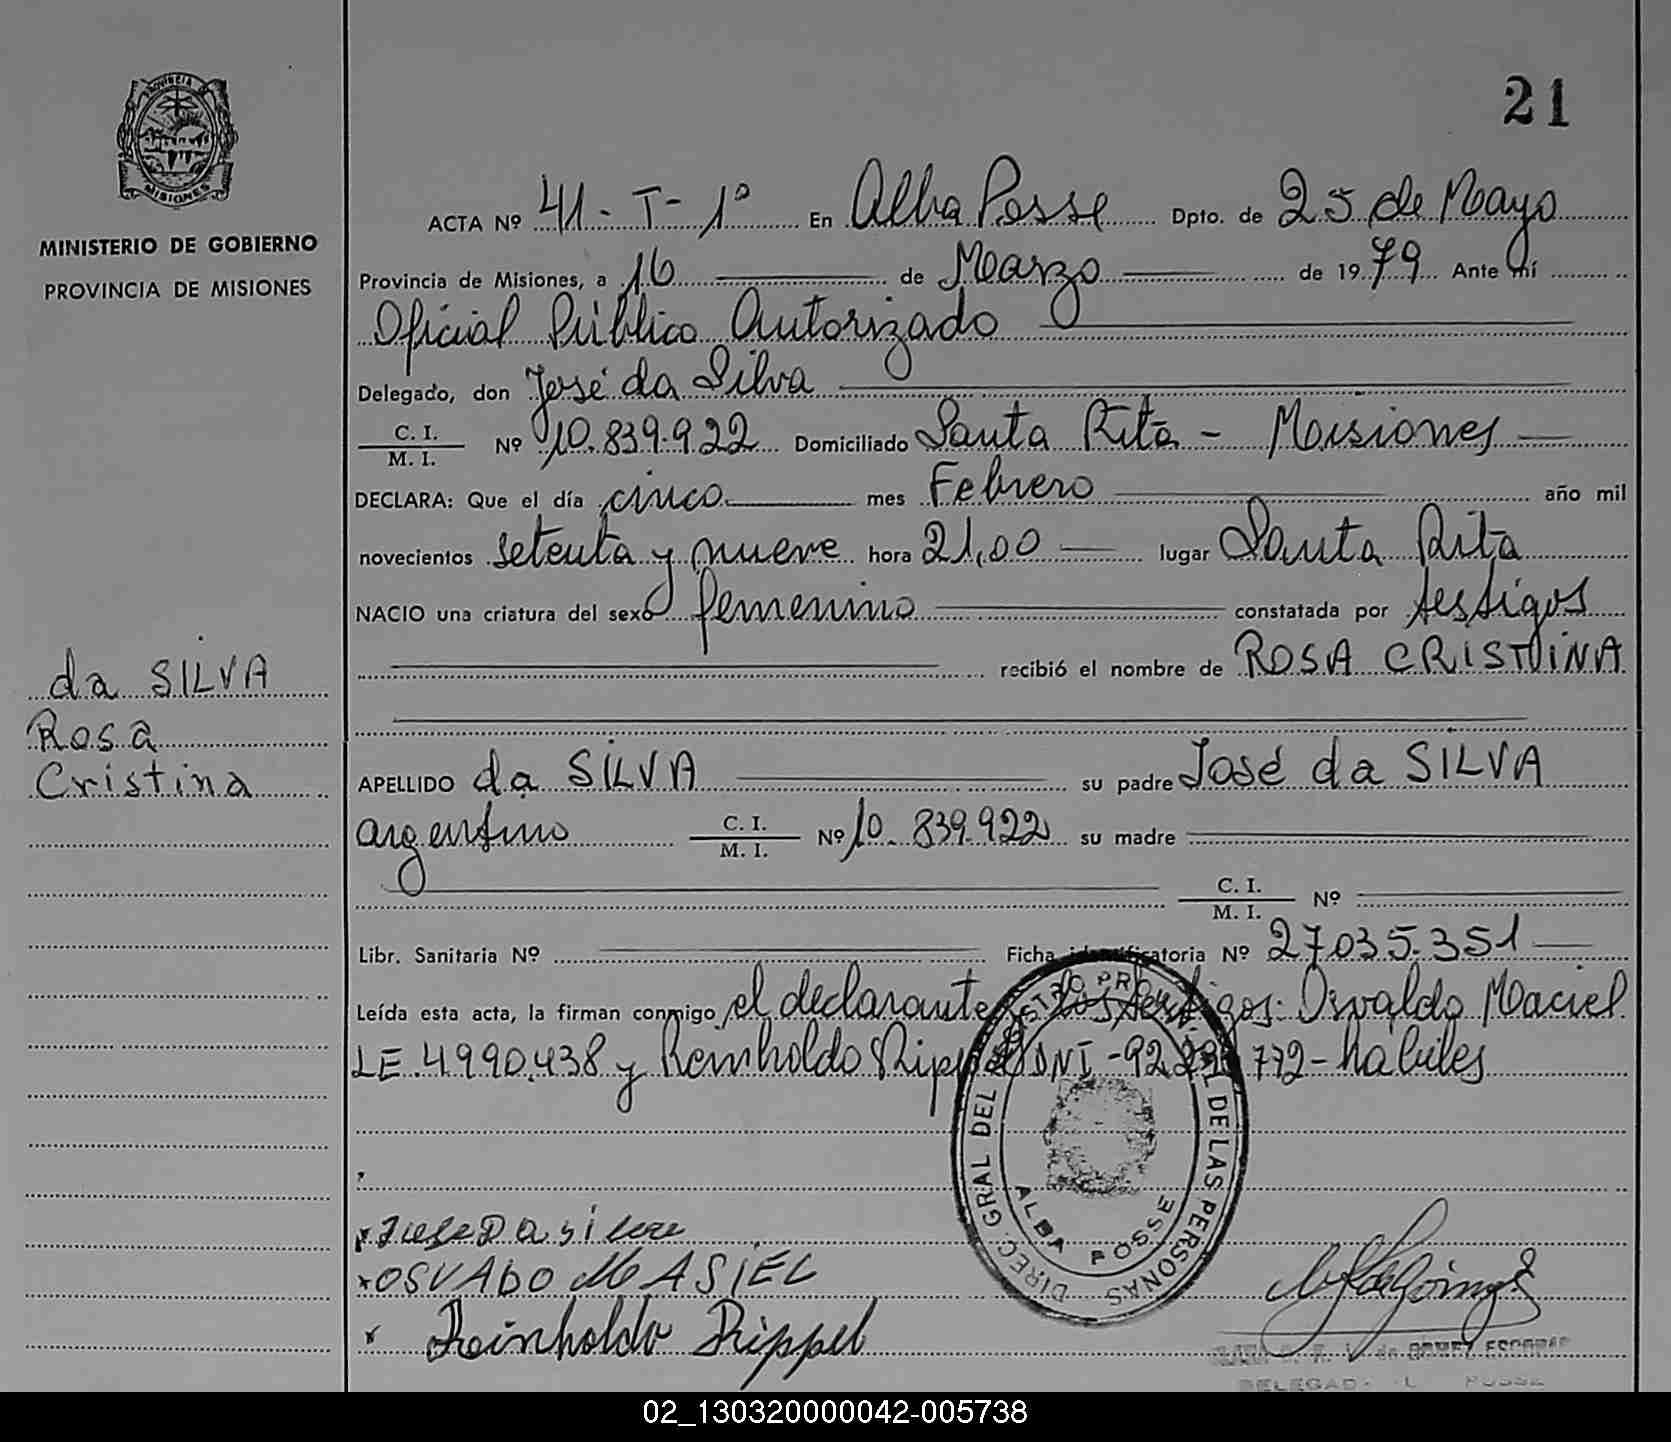 21
PROVINCIA DE
MISIONES
MINISTERIO DE GOBIERNO
PROVINCIA DE MISIONES
ACTA Nº 41-T-1º En Alba Posse Dpto. de 25 de Mayo
Provincia de Misiones, a 16 de Marzo de 1979 Ante mí
Oficial Público Autorizado
Delegado, don José da Silva
C. I. / M. I. Nº 10.839.922 Domiciliado Santa Rita - Misiones
DECLARA: Que el día cinco mes Febrero año mil
novecientos setenta y nueve hora 21,00 lugar Santa Rita
NACIO una criatura del sexo femenino constatada por testigos
recibió el nombre de ROSA CRISTINA
da SILVA
Rosa
Cristina
APELLIDO da SILVA su padre José da SILVA
argentino C. I. / M. I. Nº 10.839.922 su madre
C. I. / M. I. Nº
Libr. Sanitaria Nº Ficha identificatoria Nº 27035.351
Leída esta acta, la firman conmigo el declarante y los testigos: Osvaldo Maciel
LE 4.990.438 y Reinholdo Rippel DNI - 92. 772 - hábiles
DIREC. GRAL DEL REGISTRO PROVINCIAL DE LAS PERSONAS
ALBA POSSE
x José Da silva
x OSVADO MASIEL
x Reinholdo Rippel
de GOMEZ ESCOBAR
DELEGADA POSSE
02_130320000042-005738